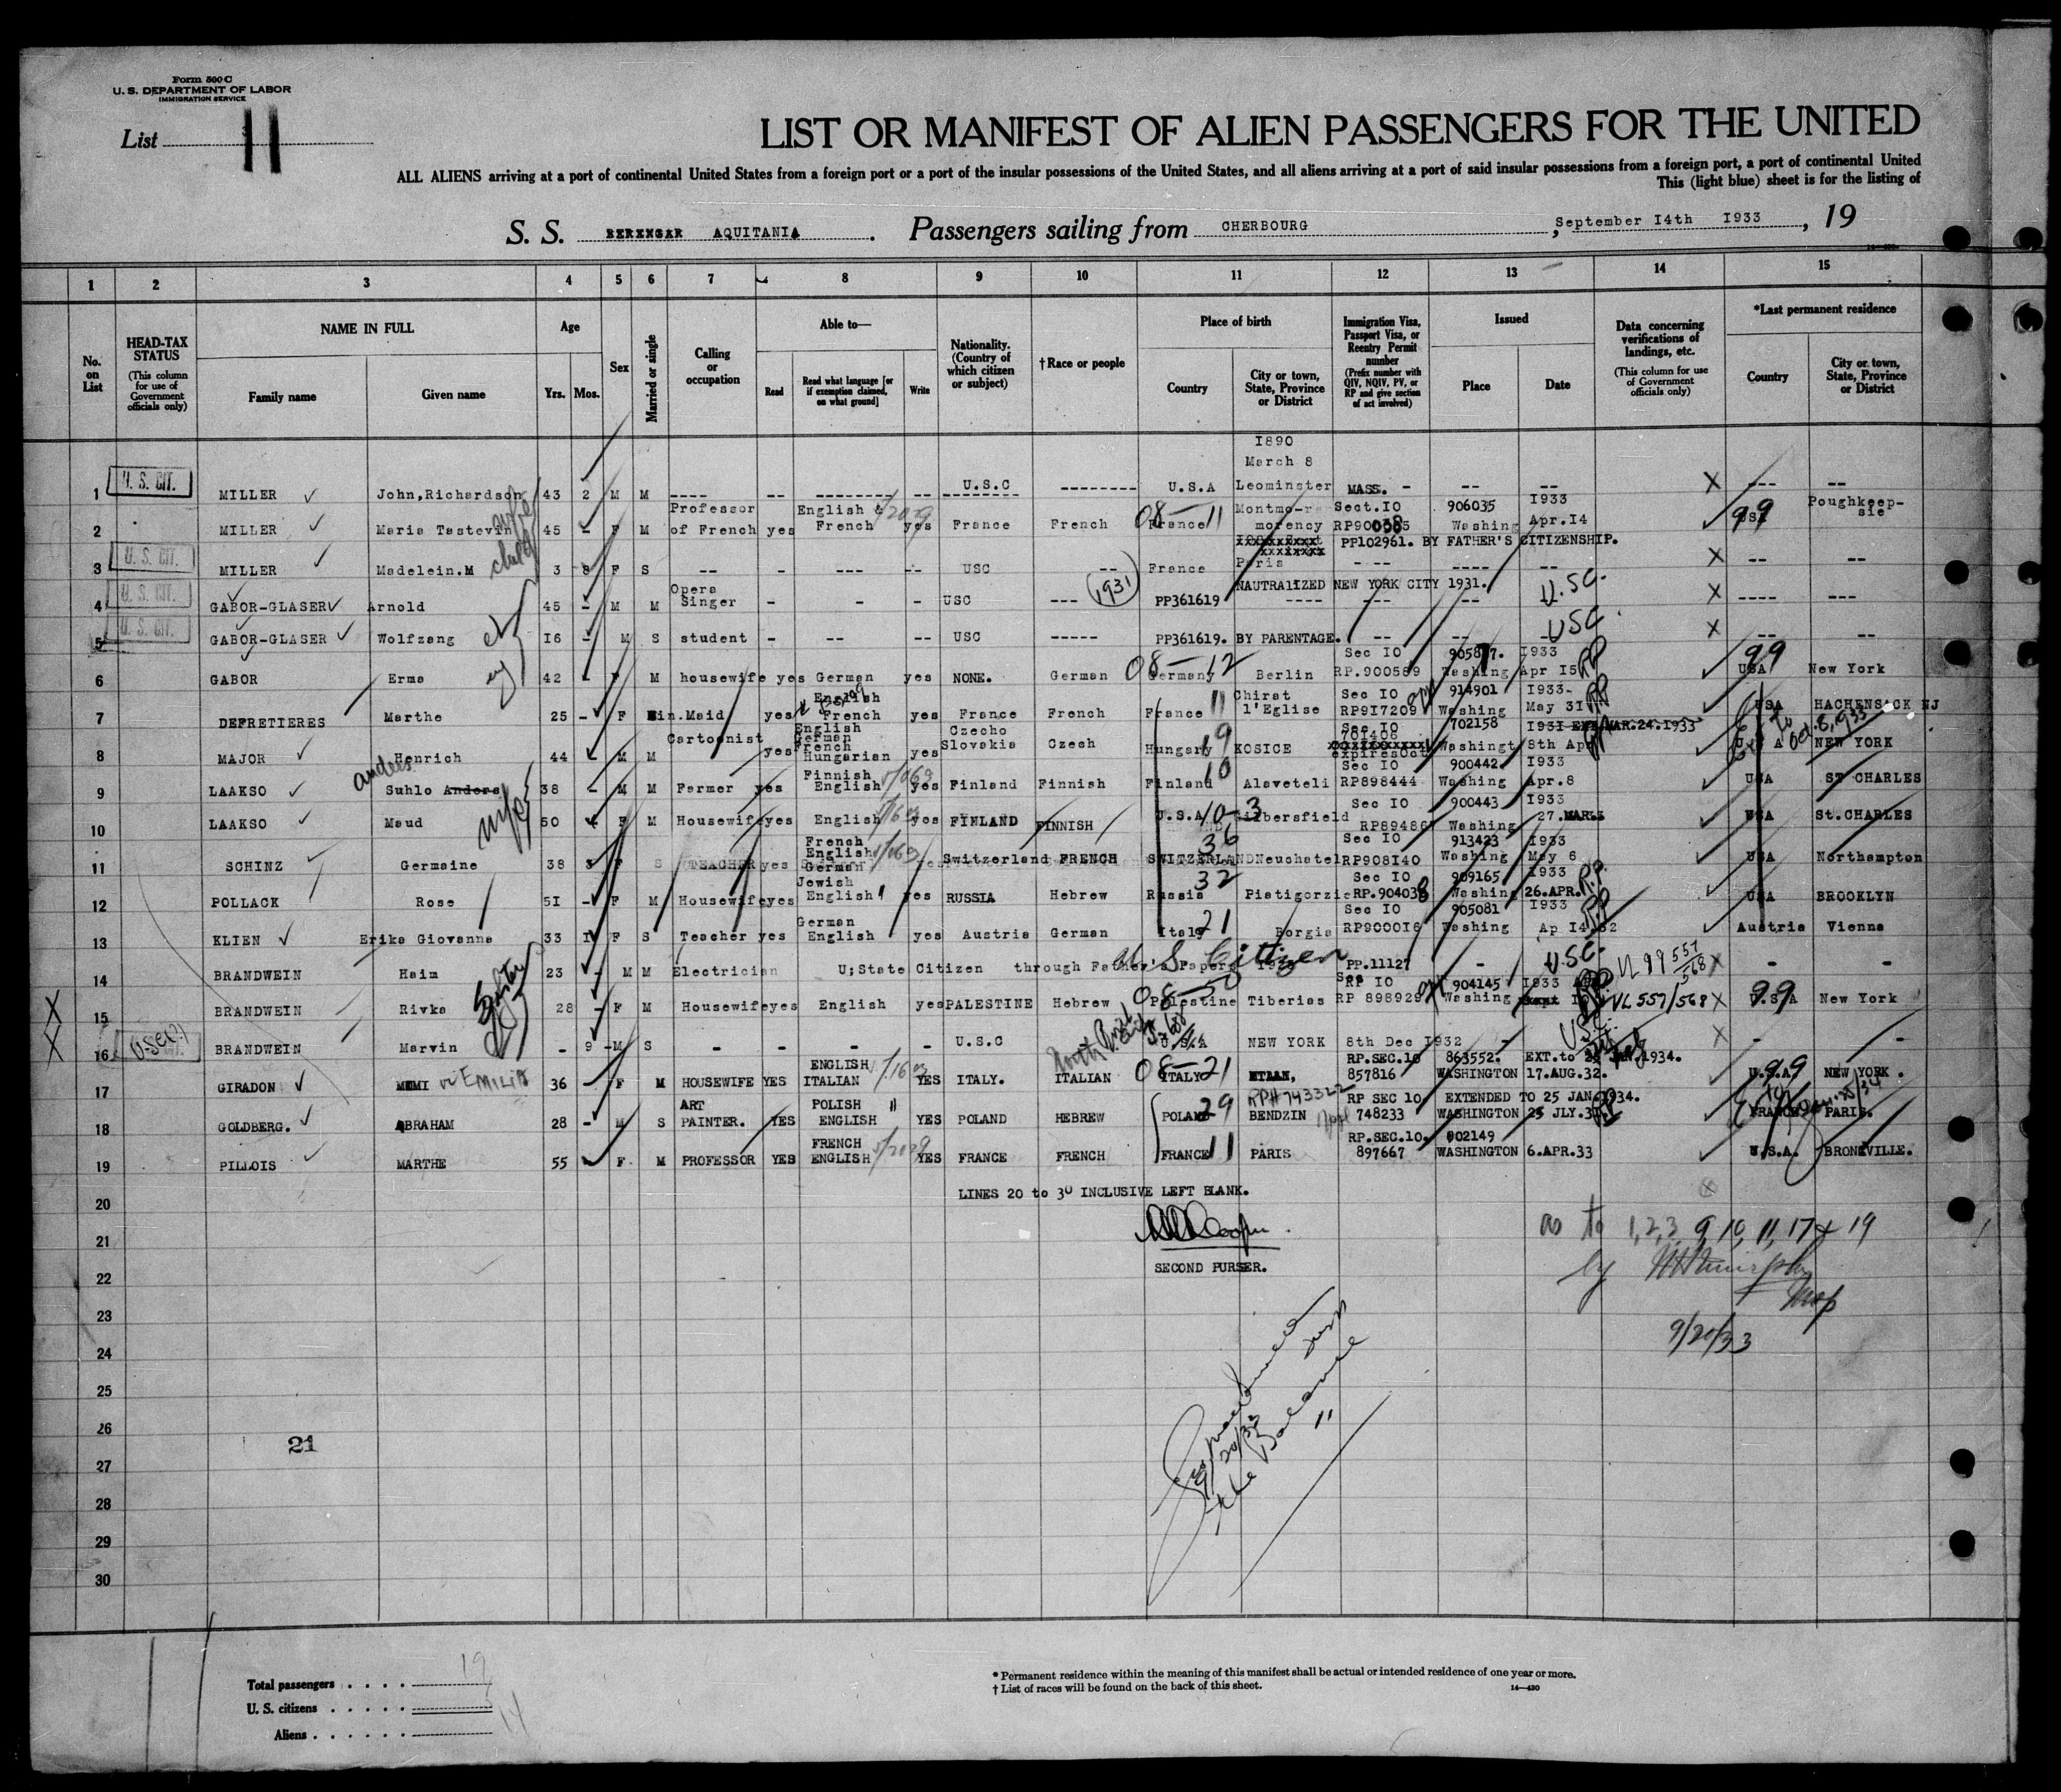 Form 500 C
U. S. DEPARTMENT OF LABOR
IMMIGRATION SERVICE
List 11
LIST OR MANIFEST OF ALIEN PASSENGERS FOR THE UNITED
ALL ALIENS arriving at a port of continental United States from a foreign port or a port of the insular possessions of the United States, and all aliens arriving at a port of said insular possessions from a foreign port, a port of continental United
This (light blue) sheet is for the listing of
S. S. BERENGAR AQUITANIA. Passengers sailing from CHERBOURG, September I4th I933, 19
1 2 3 4 5 6 7 8 9 10 11 12 13 14 15
No. on List
HEAD-TAX STATUS (This column for use of Government officials only)
NAME IN FULL Family name Given name
Age Yrs. Mos.
Sex
Married or single
Calling or occupation
Able to— Read Read what language [or if exemption claimed, on what ground] Write
Nationality. (Country of which citizen or subject)
† Race or people
Place of birth Country City or town, State, Province or District
Immigration Visa, Passport Visa, or Reentry Permit number (Prefix number with QIV, NQIV, PV, or RP and give section of act involved)
Issued Place Date
Data concerning verifications of landings, etc. (This column for use of Government officials only)
*Last permanent residence Country City or town, State, Province or District
I890
March 8
1 U. S. CIT. MILLER John,Richardson 43 2 M M ---- -- --------- -- U.S.C --------- --------- U.S.A Leominster MASS. - -- -- X --- --
Professor English & Montmo-r Sect.IO 906035 I933 Poughkeep-
2 MILLER Maria Tastevin wife 45 - F M of French yes French yes France French France 08-11 morency Washing Apr.I4 99 sie
PP102961. BY FATHER'S CITIZENSHIP.
3 U. S. CIT. MILLER Madelein.M child 3 8 F S -- -- --- -- USC -- France Paris - -- ---- -- X -- --
Opera (1931) NAUTRALIZED NEW YORK CITY 1931. U.SC.
4 U. S. CIT. GABOR-GLASER Arnold 45 - M M Singer - - - USC --- PP361619 ---- --- -- X ---- ---
5 U. S. CIT. GABOR-GLASER Wolfzang I6 - M S student - -- -- USC ----- PP361619. BY PARENTAGE. -- -- USC X -- --
Sec IO I933
6 GABOR Erma 42 - F M housewife yes German yes NONE. German Germany 08-12 Berlin RP.900589 Washing Apr I5 RP USA 99 New York
English Chirat Sec IO 914901 I933-
7 DEFRETIERES Marthe 25 - F Maid yes French yes France French France 11 l'Eglise RP9I7209 Washing May 3I RP USA HACHENSACK NJ
Cartoonist English German French Czecho Sec IO 702158 I93I EXT MAR.24.I933
8 MAJOR Henrich 44 M M yes Hungarian yes Slovakia Czech Hungary 19 KOSICE Washingt 8th Apr NEW YORK Oct. 8, 1933
Finnish Sec IO 900442 I933
9 LAAKSO Suhlo Anders 38 - M M Farmer yes English yes Finland Finnish Finland 10 Alaveteli RP898444 Washing Apr.8 USA ST CHARLES
Sec IO 900443 I933
10 LAAKSO Maud wife 50 F M Housewife yes English yes FINLAND FINNISH U.S.A 10-3 Washing 27. USA St.CHARLES
French English Sec IO 913423 I933
11 SCHINZ Germaine 38 3 F S TEACHER yes German yes Switzerland FRENCH SWITZERLAND 36 Neuchatel RP908I40 Washing May 6 USA Northampton
Jewish Sec IO 909165 I933
12 POLLACK Rose 5I - F M Housewife yes English yes RUSSIA Hebrew Russia 32 Piatigorzic RP.904038 Washing 26.APR. RP USA BROOKLYN
German Sec IO 905081 I933
13 KLIEN Erika Giovanna 33 F S Teacher yes English yes Austria German Italy 21 Borgia RP9000I6 Washing Ap I4 Austria Vienna
14 BRANDWEIN Haim 23 - M M Electrician U;State Citizen through Father's Papers U.S. Citizen PP.11127 - USC VL 99 557/568 X - -
RP IO 904145 I933
15 BRANDWEIN Rivka 28 - F M Housewife yes English yes PALESTINE Hebrew Palestine 08-50 Tiberias RP 898929 Washing VL 557/568 X U.S.A 99 New York
16 BRANDWEIN Marvin - 9 - M S - - - - U.S.C U.S.A NEW YORK 8th Dec I932 - USC X - -
ENGLISH RP.SEC.10 863552. EXT.to JAN.1934.
17 GIRADON MEMI or EMILIA 36 - F M HOUSEWIFE YES ITALIAN YES ITALY. ITALIAN ITALY 08-21 857816 WASHINGTON 17.AUG.32. U.S.A 99 NEW YORK.
ART POLISH RP SEC 10 EXTENDED TO 25 JAN.1934.
18 GOLDBERG. ABRAHAM 28 - M S PAINTER. YES ENGLISH YES POLAND HEBREW POLAND 29 BENDZIN 748233 WASHINGTON 25 JLY.31 FRANCE PARIS.
FRENCH RP.SEC.10. 902149
19 PILLOIS MARTHE 55 F M PROFESSOR YES ENGLISH YES FRANCE FRENCH FRANCE 11 PARIS 897667 WASHINGTON 6.APR.33 U.S.A. BRONXVILLE.
LINES 20 to 30 INCLUSIVE LEFT BLANK.
20
21
SECOND PURSER.
as to 1,2,3 9,10,11,17 & 19
by
9/20/33
22
23
24
25
26
27
28
29
30
21
9/20/33
the Balance
Total passengers . . . . 19
U. S. citizens . . . . .
Aliens . . . . . . 14
* Permanent residence within the meaning of this manifest shall be actual or intended residence of one year or more.
† List of races will be found on the back of this sheet.
14—430